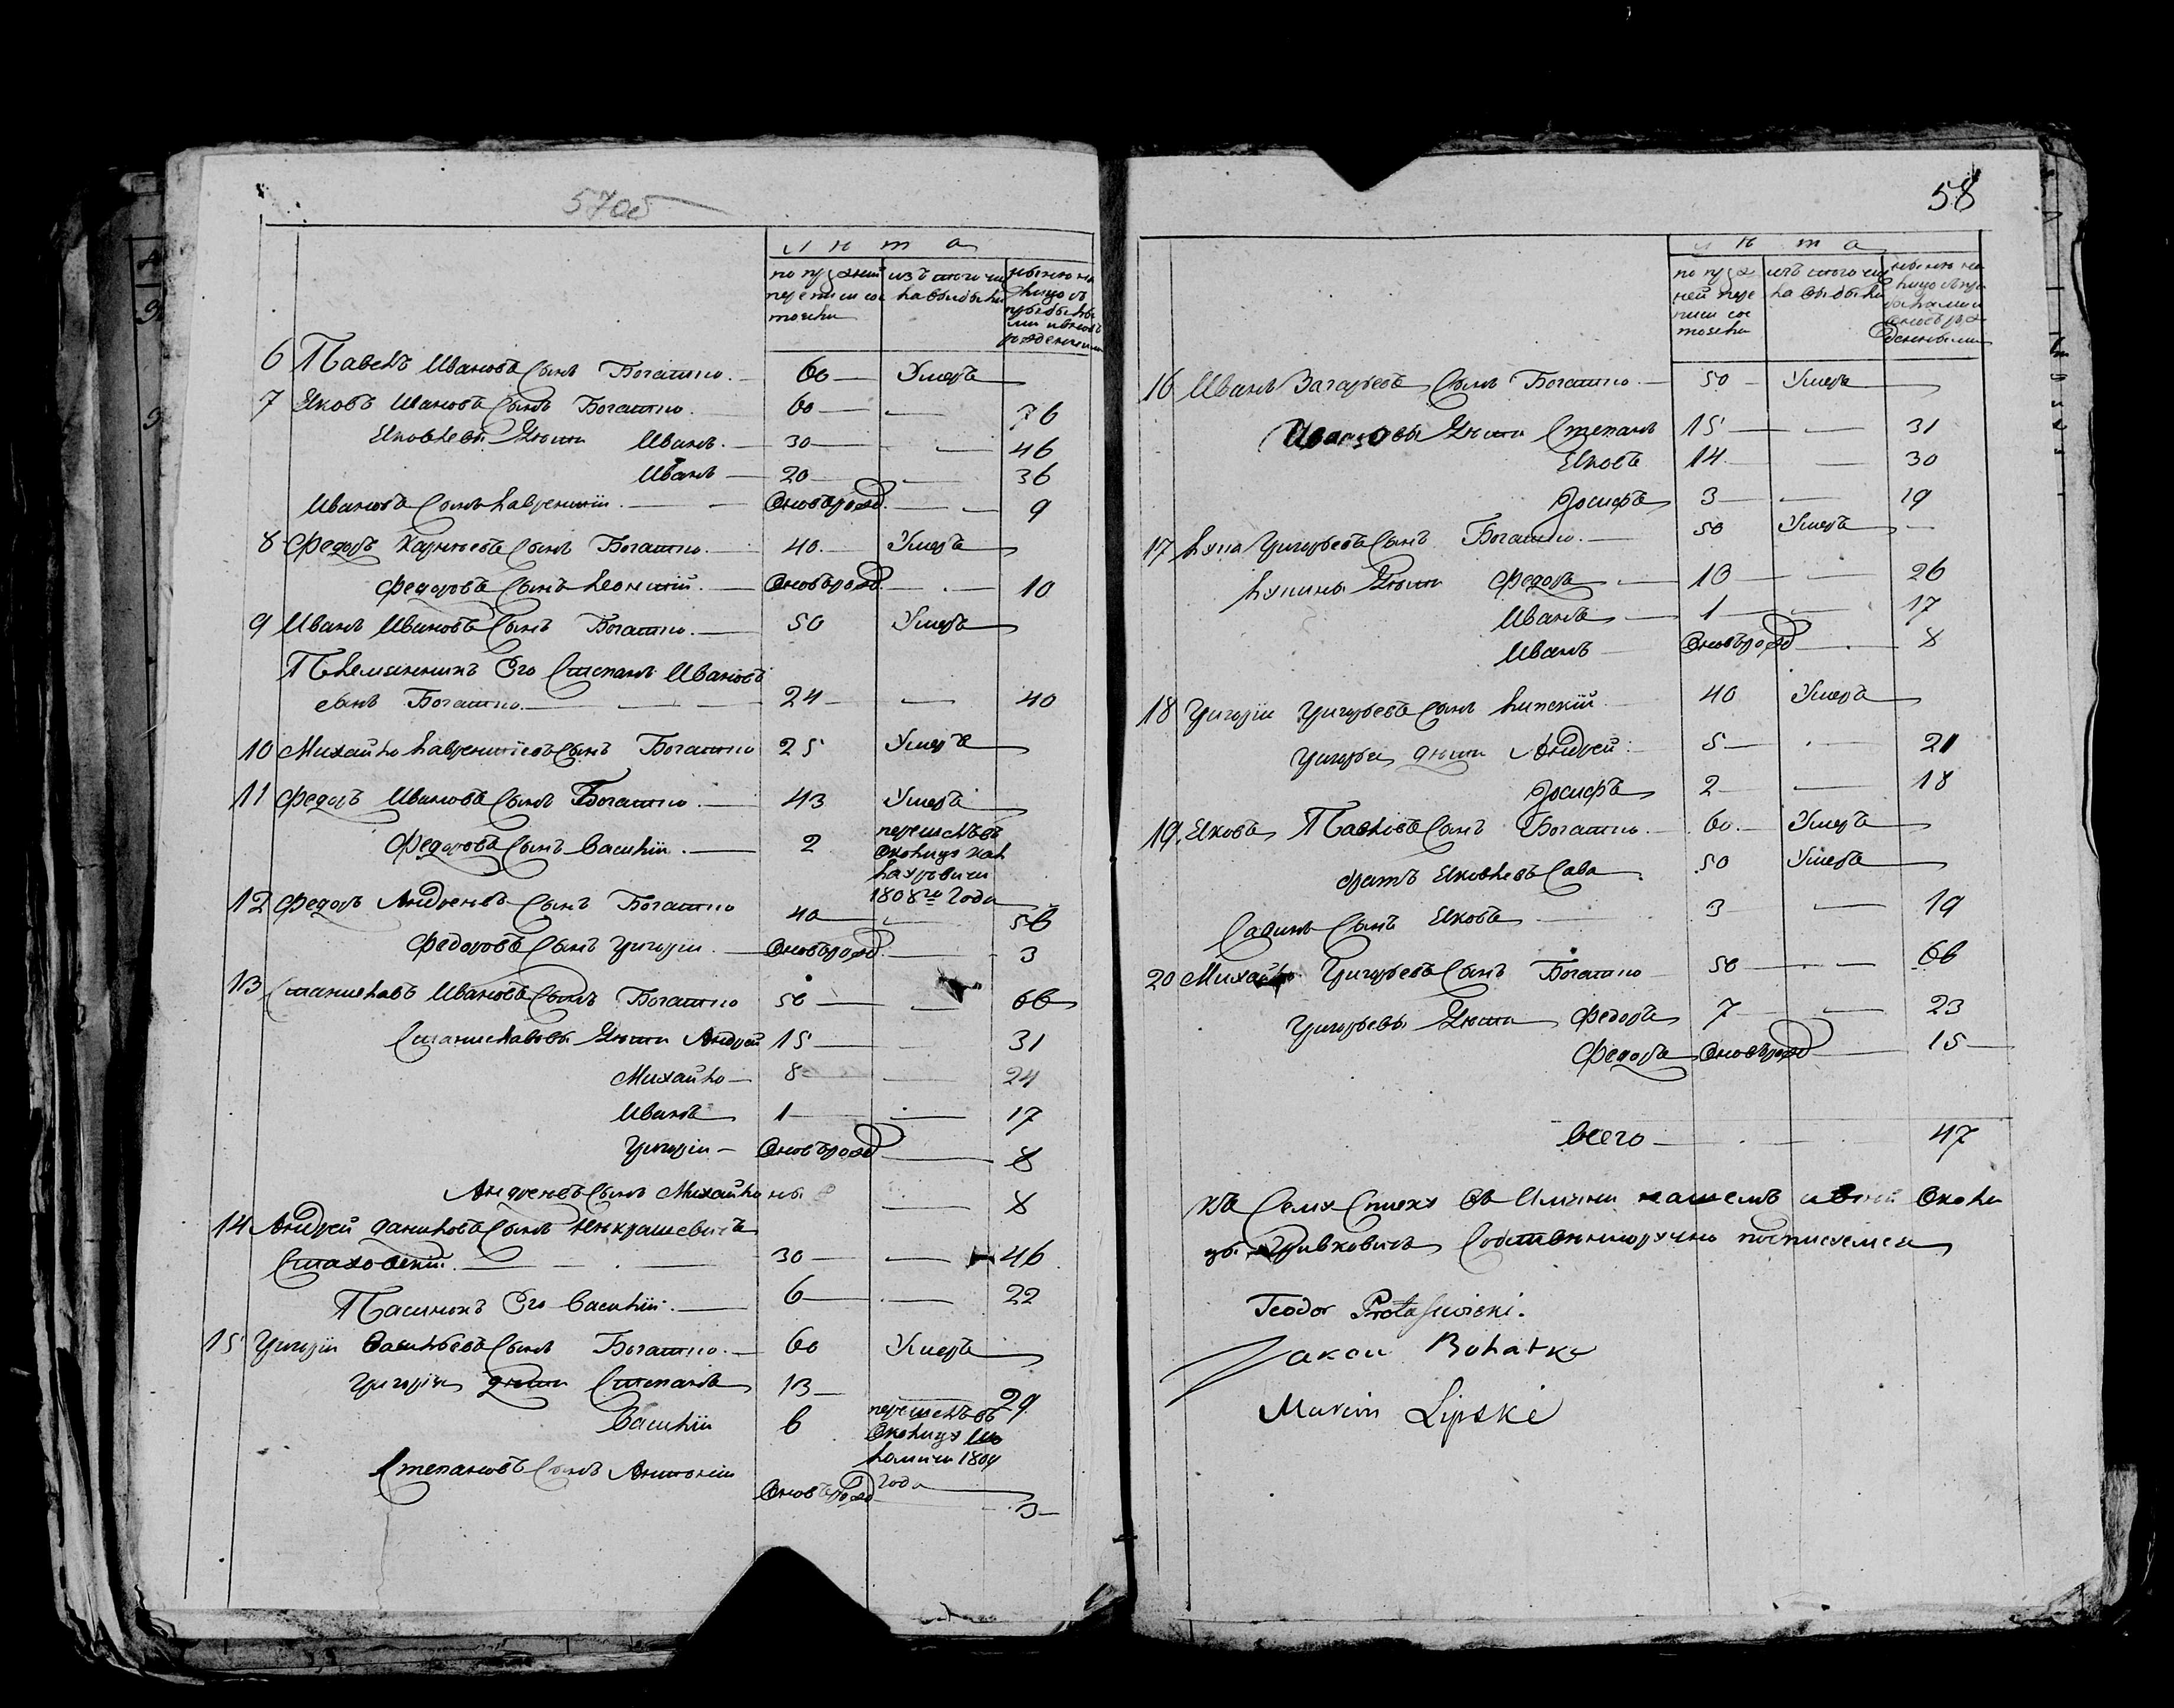 57об
лѣта
по прежней переписи состояли
изъ того числа выбыли
ныне на лицо съ прибылыми и вновь рожденными
6 Павелъ Ивановъ сынъ Богатко. — 60 — Умеръ
7 Яковъ Ивановъ сынъ Богатко. — 60 — — 76
Яковлевы дѣти Иванъ. — 30 — — 46
Иванъ — 20 — — 36
Ивановъ сынъ Лаврентiи. — вновь рожд. — 9
8 Федоръ Карпьевъ сынъ Богатко. — 40. — Умеръ
Федоровъ сынъ Леонтiй. — вновь рожд. — 10
9 Иванъ Ивановъ сынъ Богатко. — 50 Умеръ
Племянникъ Его Степанъ Ивановъ
сынъ Богатко. — 24 — — 40
10 Михайло Лаврентiевъ сынъ Богатко 25 Умеръ
11 Федоръ Ивановъ сынъ Богатко. — 43 Умеръ
Федоровъ сынъ Василiи. — 2 перешелъ въ
околицу
1808го Года
12 Федоръ Андреевъ сынъ Богатко 40 — — 56
Федоровъ сынъ Григорiи. — вновь рожд. — 3
13 Станиславъ Ивановъ сынъ Богатко 50 — — 66
Станиславовы дѣти Андрей 15 — — 31
Михайло — 8 — — 24
Иванъ 1 — — 17
Григорiи — вновь рожд — 8
Андреевъ сынъ Михайло — 8
14 Андрей Даниловъ сынъ Некрашевичъ
Стаховскiй. — 30 — — 46
Пасинокъ Его Василiи. — 6 — — 22
15 Григорiи Васильевъ сынъ Богатко. — 60 Умеръ
Григорiи дѣти Степанъ 13 — — 29
Василiи 6 перешелъ въ
околицу
1809
Года
Степановъ сынъ Антонiи вновь рожд — 3 —
58
лѣта
по прежней переписи состояли
изъ того числа выбыли
ныне на лицо съ прибылыми и вновь рожденными
16 Иванъ Захарьевъ сынъ Богатко. — 50 — Умеръ
Ивановы дѣти Степанъ 15 — — 31
Яковъ 14 — — 30
Iосифъ 3 — — 19
17 Лука Григорьевъ сынъ Богатко. — 50 Умеръ —
Лукины дѣти Федоръ — 10 — — 26
Иванъ — 1 — — 17
Иванъ вновь рожд — 8
18 Григорiи Григорьевъ сынъ Липскiй 40 Умеръ
Григорьи дѣти Андрей 5 — — 21
Iосифъ 2 — — 18
19. Яковъ Павловъ сынъ Богатко. — 60. — Умеръ
братъ Яковлевъ Сава 50 Умеръ
Савинъ сынъ Яковъ 3 — — 19
20 Михайло Григорьевъ сынъ Богатко 50 — — 66
Григорьевы дѣти Федоръ 7 — — 23
Федоръ вновь рожд — 15 —
Всего — 47
Къ Сему Списку въ Имѣнiи нашемъ и въ ней Околи
цы Собственноручно подписуемся
Teodor Protasiwicki.
Jakou Bohatko
Marcin Lipski